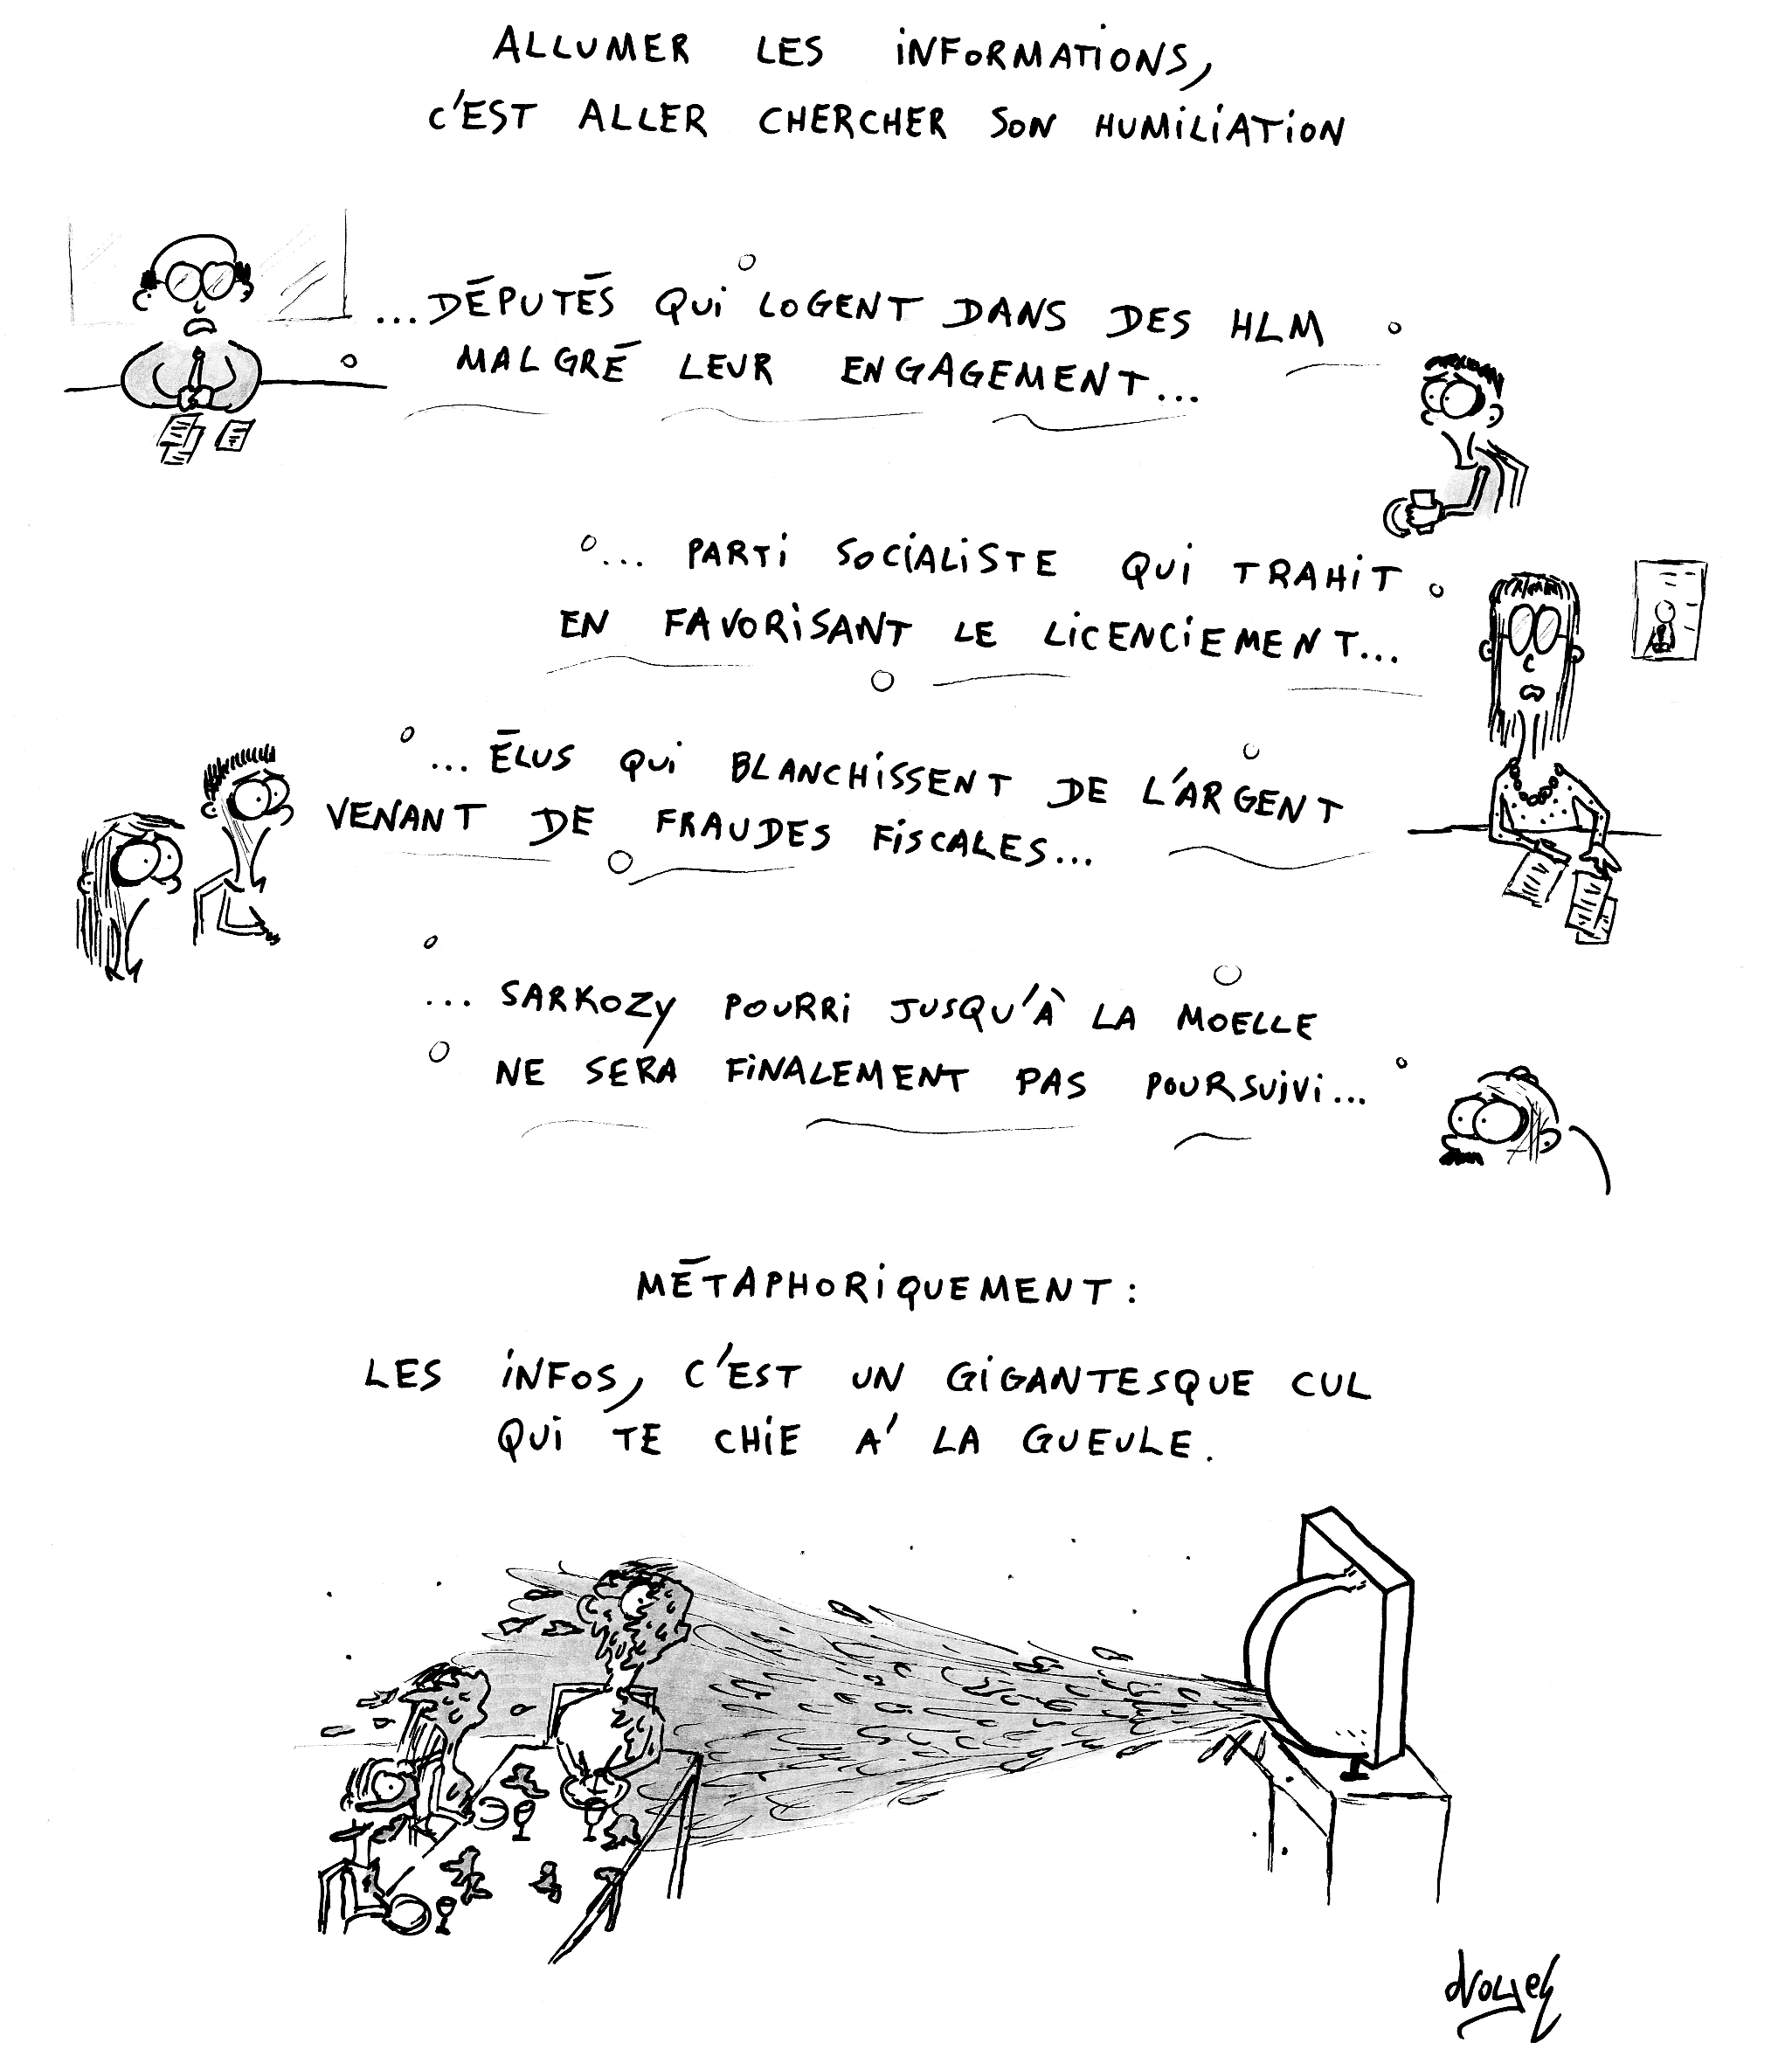 ALLUMER LES INFORMATIONS,
C'EST ALLER CHERCHER SON HUMILIATION
...DÉPUTÉS QUI LOGENT DANS DES HLM
MALGRÉ LEUR ENGAGEMENT...
... PARTI SOCIALISTE QUI TRAHIT
EN FAVORISANT LE LICENCIEMENT...
... ÉLUS QUI BLANCHISSENT DE L'ARGENT
VENANT DE FRAUDES FISCALES...
... SARKOZY POURRI JUSQU'À LA MOELLE
NE SERA FINALEMENT PAS POURSUIVI...
MÉTAPHORIQUEMENT:
LES INFOS, C'EST UN GIGANTESQUE CUL
QUI TE CHIE A' LA GUEULE.